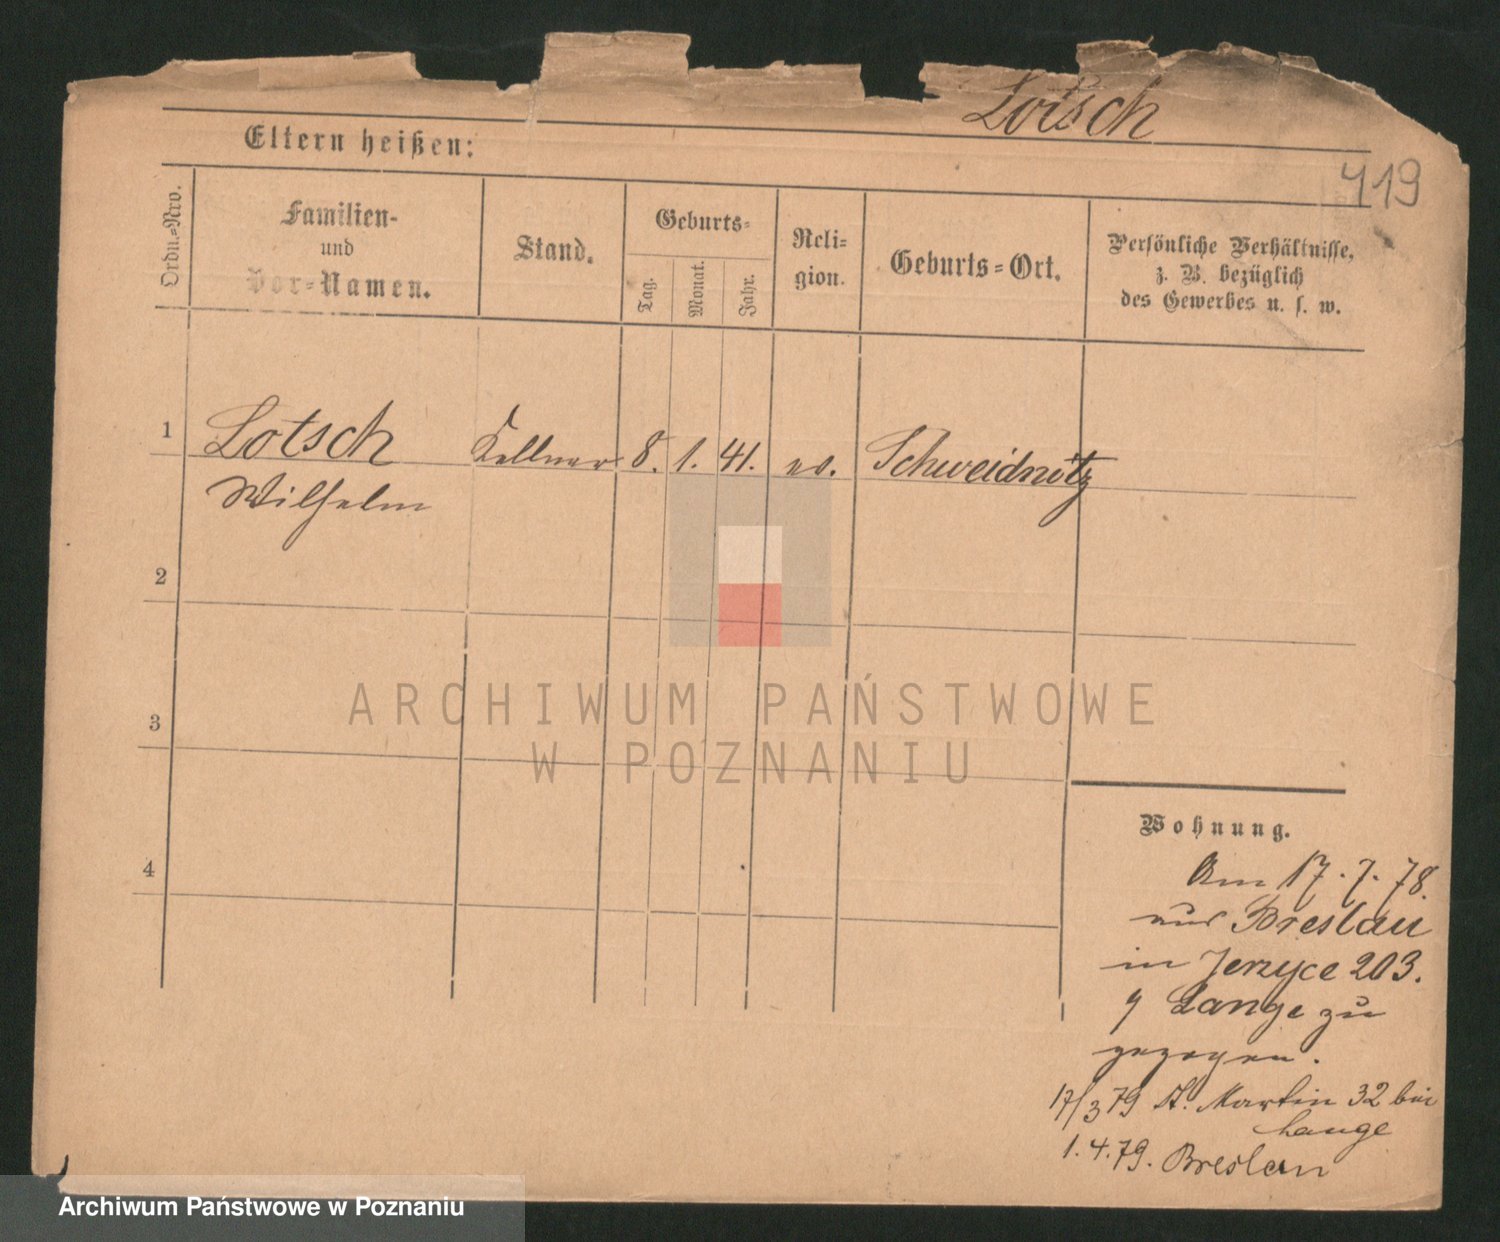 Lotsch
Eltern heißen:
419
Ordn.=Nro.
Familien-
und
Vor=Namen.
Stand.
Geburts=
Tag.
Monat.
Jahr.
Reli=
gion.
Geburts=Ort.
Persönliche Verhältnisse,
z. B. bezüglich
des Gewerbes u. s. w.
1
Lotsch Kellner 8. 1. 41. ev. Schweidnitz
Wilhelm
2
3
4
ARCHIWUM PAŃSTWOWE
W POZNANIU
Wohnung.
Am 17.7.78.
aus Breslau
in Jerzyce 203.
Lange zu
gezogen.
17/3 79 St. Martin 32 bei
Lange
1.4.79. Breslau
Archiwum Państwowe w Poznaniu